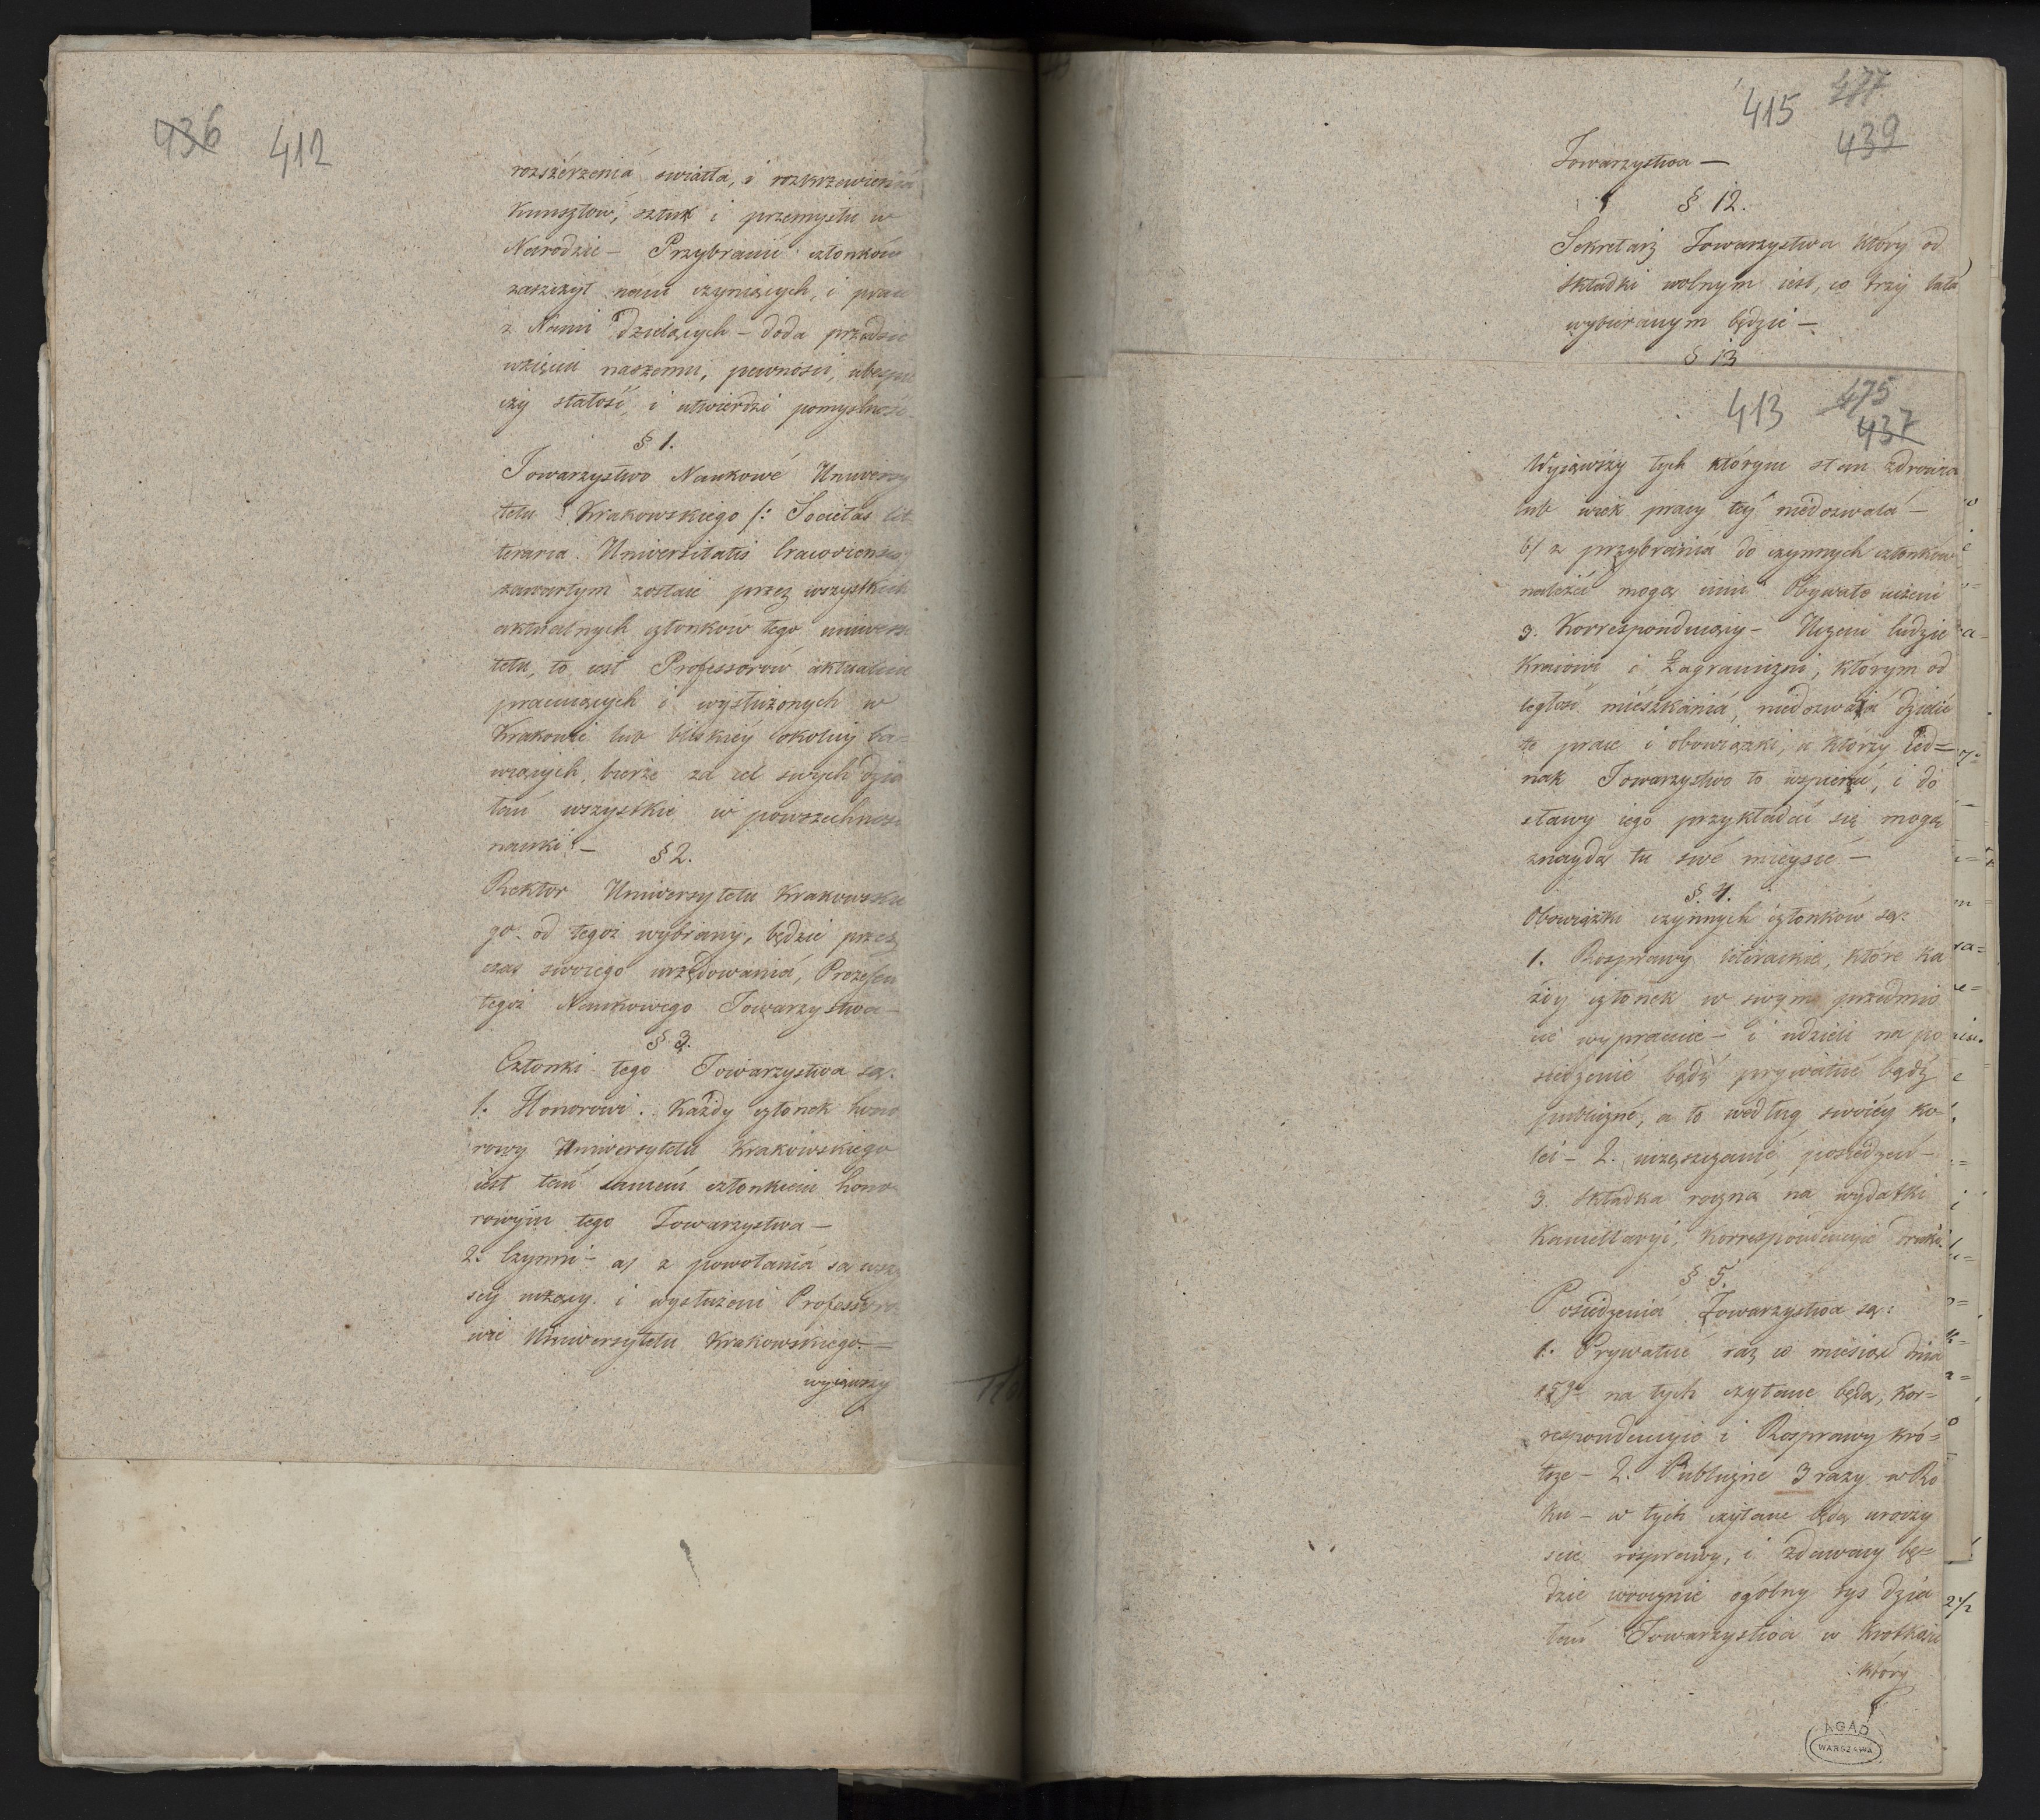 436 412
rozszérzeniá swiatła, i rozkrzewieniá
Kunsztow, sztuk i przemysłu w
Narodzie – Przybranie członków
zaszczyt nam czyniących, i prace
z Nami dzielących – doda przedsie
wzięciu naszemu, pewności, ubezpie
czy stałość, i utwierdzi pomyslność.
§ 1.
Towarzystwo Naukowé Uniwersy
tetu Krakowskiego /: Societas lit
teraria Universitatis Cracoviensis
zawartym zostaie przez wszystkich
aktualnych członków tego uniwersy
tetu, to iest Professorów aktualnie
pracuiących i wysłużonych w
Krakowie lub bliskiéy okolicy ba=
wiących, bierze za cel swych dzia
łań wszystkie w powszechności
nauki. –
§ 2.
Rektor Uniwersytetu Krakowskie
go od tegoż wybrany, będzie przez
czas swoiego urzędowaniá, Prezesem
tegoż Naukowego Towarzystwa –
§ 3.
Członki tego Towarzystwa są.
1. Honorowi. Każdy członek hono
rowy Uniwersytetu Krakowskiego
iest tém samém członkiem hono
rowym tego Towarzystwa –
2. Czynni – a/ z powołaniá są wszy
scy uczący i wysłużeni Professoro
wie Uniwersytetu Krakowskiego. =
wyiąwszy
415 477
439
Towarzystwa –
§ 12.
Sekretarz Towarzystwa który od
składki wolnym iest, co trzy lata
wybieranym będzie –
§ 13
413 475
437
Wyiąwszy tych którym stan zdrowia
lub wiek pracy téy niedozwalá –
b/ z przybraniá do czynnych członków
należéć mogą inni Obywatele uczeni
3. Korrespónduiący – Uczeni ludzie
Kraiowi i Zagraniczni, którym od
ległość mieszkániá, niedozwalá dzielić
te prace i obowiązki, a którzy ied=
nak Towarzystwo to wspierać, i do
sławy iego przykładać się mogą
znaydą tu swé mieysce –
§. 4.
Obowiązki czynnych członków są:
1. Rosprawy literackie, które ka
żdy członek w swym przedmio
cie wypracuie – i udzieli na po
siedzenié bądź prywatné bądź
publiczné, a to według swoiéy ko=
lei – 2. uczęszczanié posiedzeń –
3. Składka roczná na wydatki
Kancellaryi, Korrespondencyie druku.
§ 5.
Posiedzeniá Towarzystwa są:
1. Prywatné raz w miesiąc dnia
15go na tych czytane będą, Kor=
respondencyie i Rosprawy kró=
tsze – 2. Publiczne 3 razy w Ro
ku – w tych czytane będą uroczy
ste rosprawy, i zdawany bę=
dzie corocznie ogólny rys dzia
łań Towarzystwa w Krotkości
który
2/2
AGAD
WARSZAWA